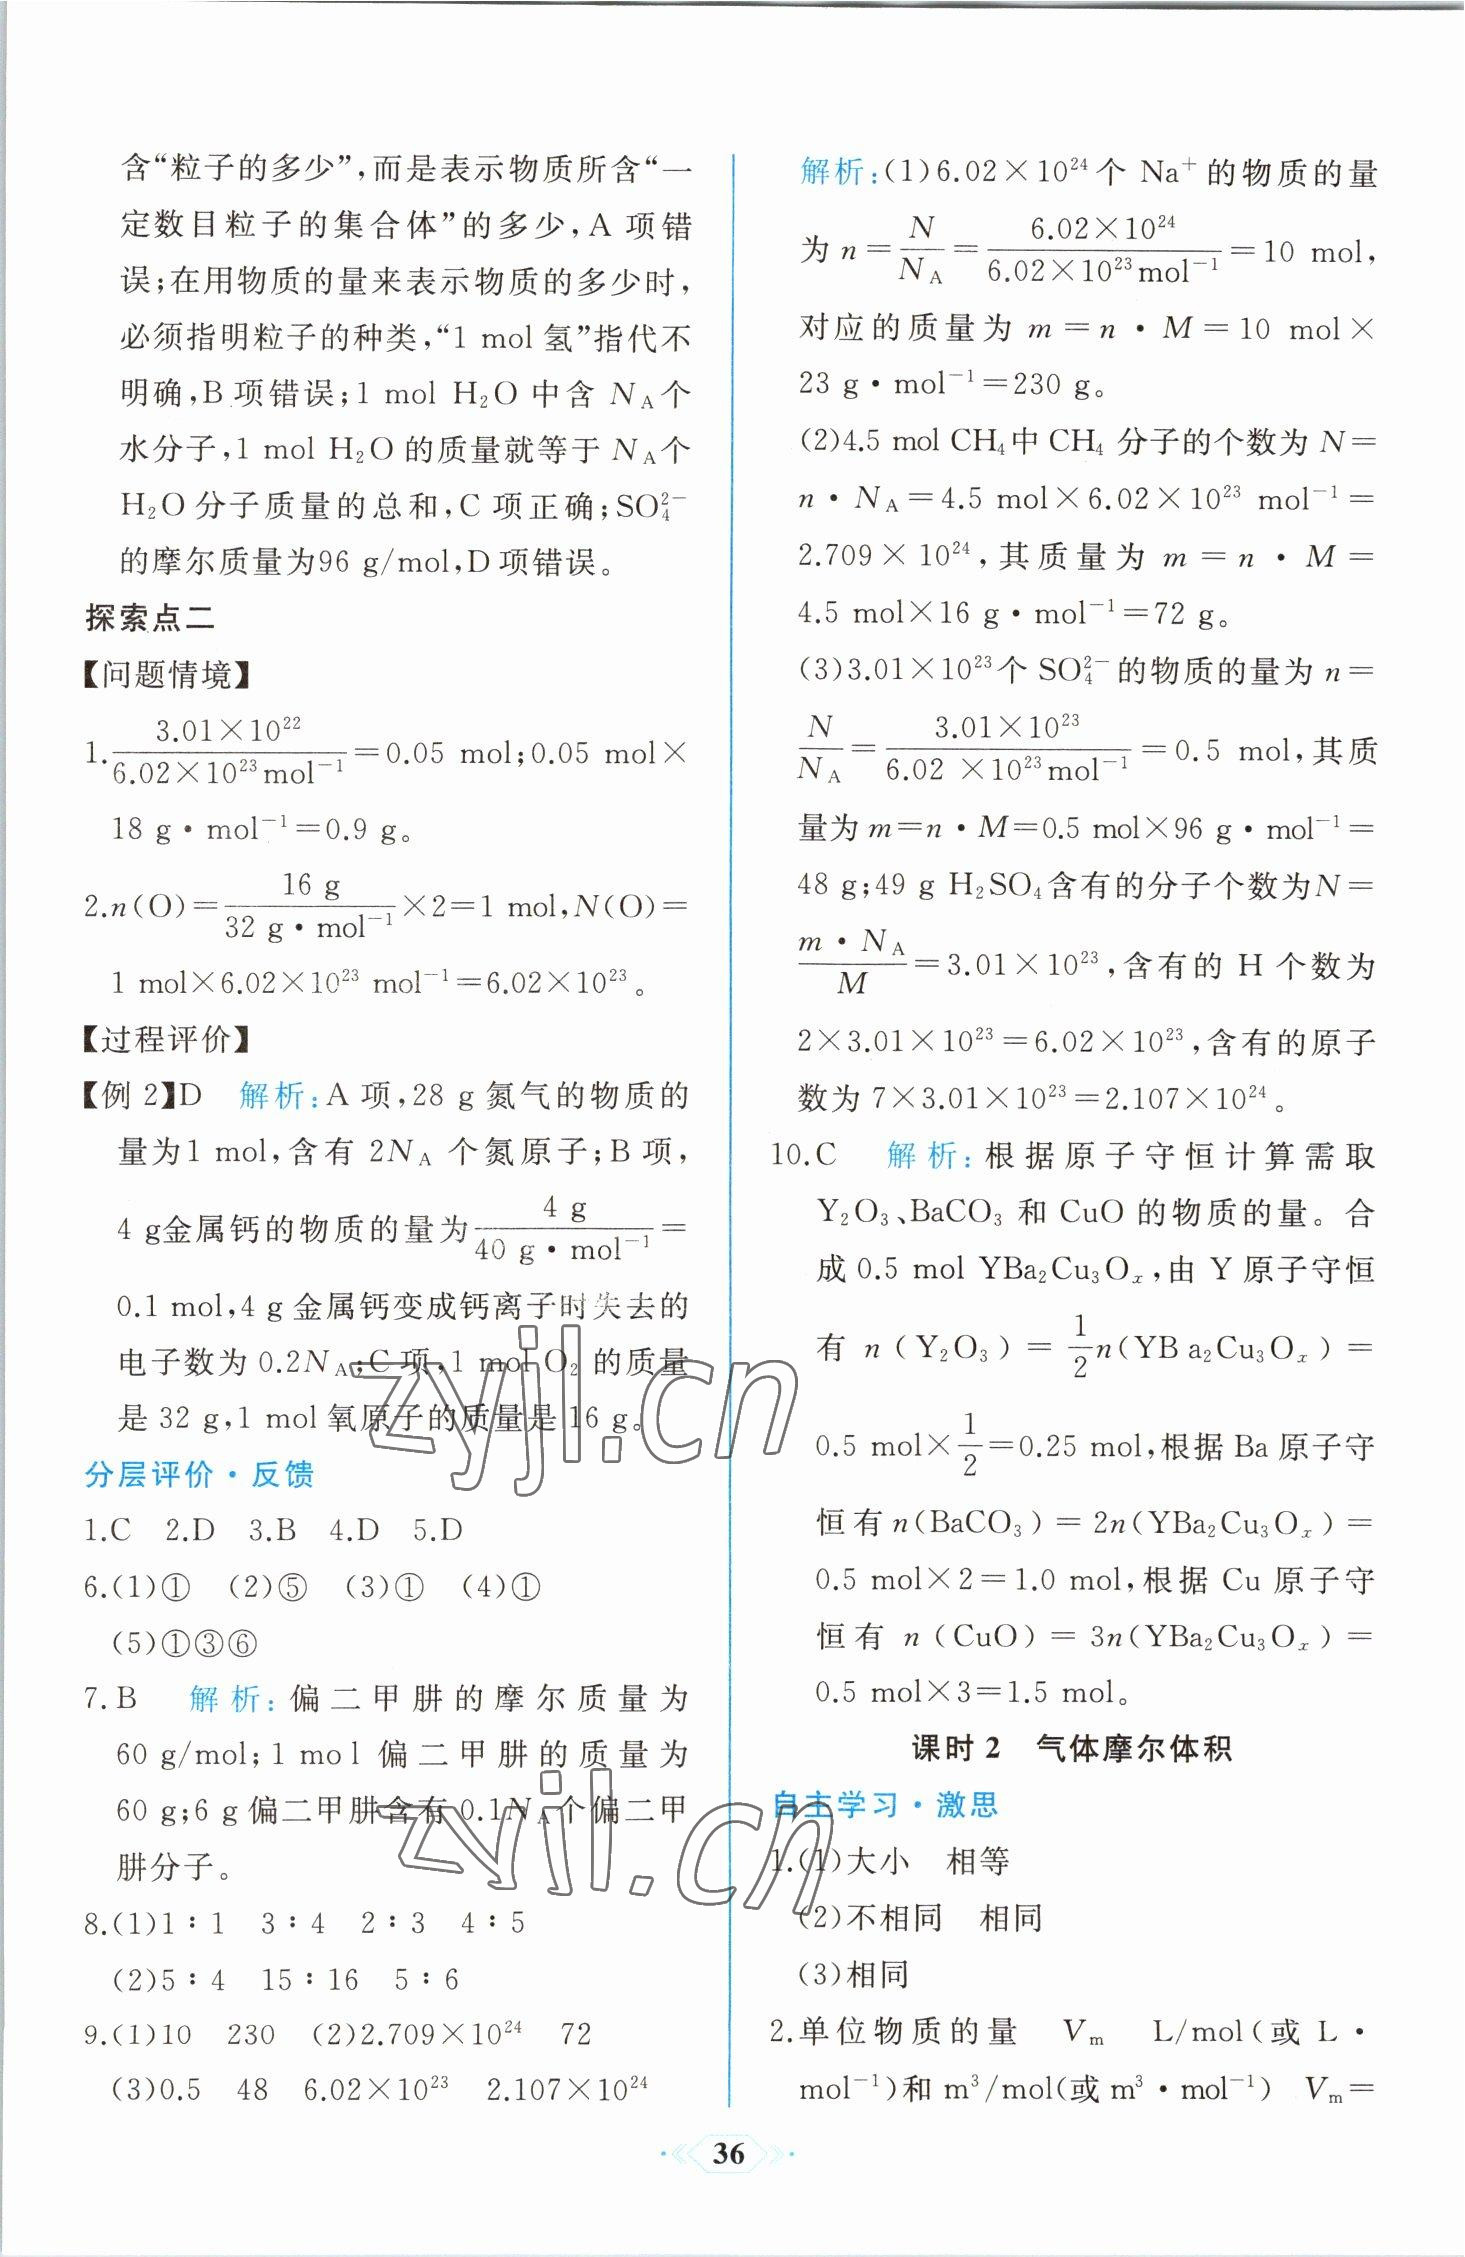 含“粒子的多少”,而是表示物质所含“一
定数目粒子的集合体”的多少,A 项错
误;在用物质的量来表示物质的多少时,
必须指明粒子的种类,“1 mol 氢”指代不
明确,B 项错误;1 mol H₂O 中含 N_A 个
水分子,1 mol H₂O 的质量就等于 N_A 个
H₂O 分子质量的总和,C 项正确;SO₄²⁻
的摩尔质量为96 g/mol,D 项错误。
探索点二
【问题情境】
1. 3.01×10²² / 6.02×10²³ mol⁻¹ =0.05 mol;0.05 mol×
18 g·mol⁻¹=0.9 g。
2.n(O)= 16 g / 32 g·mol⁻¹ ×2=1 mol,N(O)=
1 mol×6.02×10²³ mol⁻¹=6.02×10²³。
【过程评价】
【例 2】D 解析:A 项,28 g 氮气的物质的
量为1 mol,含有 2N_A 个氮原子;B 项,
4 g金属钙的物质的量为 4 g / 40 g·mol⁻¹ =
0.1 mol,4 g 金属钙变成钙离子时失去的
电子数为 0.2N_A;C 项,1 mol O₂ 的质量
是 32 g,1 mol 氧原子的质量是 16 g。
分层评价·反馈
1.C 2.D 3.B 4.D 5.D
6.(1)① (2)⑤ (3)① (4)①
(5)①③⑥
7.B 解析:偏二甲肼的摩尔质量为
60 g/mol;1 mol 偏二甲肼的质量为
60 g;6 g 偏二甲肼含有 0.1N_A 个偏二甲
肼分子。
8.(1)1∶1 3∶4 2∶3 4∶5
(2)5∶4 15∶16 5∶6
9.(1)10 230 (2)2.709×10²⁴ 72
(3)0.5 48 6.02×10²³ 2.107×10²⁴
解析:(1)6.02×10²⁴ 个 Na⁺ 的物质的量
为 n= N / N_A = 6.02×10²⁴ / 6.02×10²³ mol⁻¹ =10 mol,
对应的质量为 m=n·M=10 mol×
23 g·mol⁻¹=230 g。
(2)4.5 mol CH₄中 CH₄ 分子的个数为 N=
n·N_A=4.5 mol×6.02×10²³ mol⁻¹=
2.709×10²⁴,其质量为 m=n·M=
4.5 mol×16 g·mol⁻¹=72 g。
(3)3.01×10²³个 SO₄²⁻ 的物质的量为 n=
N / N_A = 3.01×10²³ / 6.02 ×10²³ mol⁻¹ =0.5 mol,其质
量为 m=n·M=0.5 mol×96 g·mol⁻¹=
48 g;49 g H₂SO₄含有的分子个数为N=
m·N_A / M =3.01×10²³,含有的 H 个数为
2×3.01×10²³=6.02×10²³,含有的原子
数为 7×3.01×10²³=2.107×10²⁴。
10.C 解析:根据原子守恒计算需取
Y₂O₃、BaCO₃ 和 CuO 的物质的量。合
成 0.5 mol YBa₂Cu₃Oₓ,由 Y 原子守恒
有 n(Y₂O₃)= 1/2 n(YB a₂Cu₃Oₓ)=
0.5 mol× 1/2 =0.25 mol,根据 Ba 原子守
恒有 n(BaCO₃)=2n(YBa₂Cu₃Oₓ)=
0.5 mol×2=1.0 mol,根据 Cu 原子守
恒有 n(CuO)=3n(YBa₂Cu₃Oₓ)=
0.5 mol×3=1.5 mol。
课时 2 气体摩尔体积
自主学习·激思
1.(1)大小 相等
(2)不相同 相同
(3)相同
2.单位物质的量 Vₘ L/mol(或 L·
mol⁻¹)和 m³/mol(或 m³·mol⁻¹) Vₘ=
36
zyjl.cn
zyjl.cn